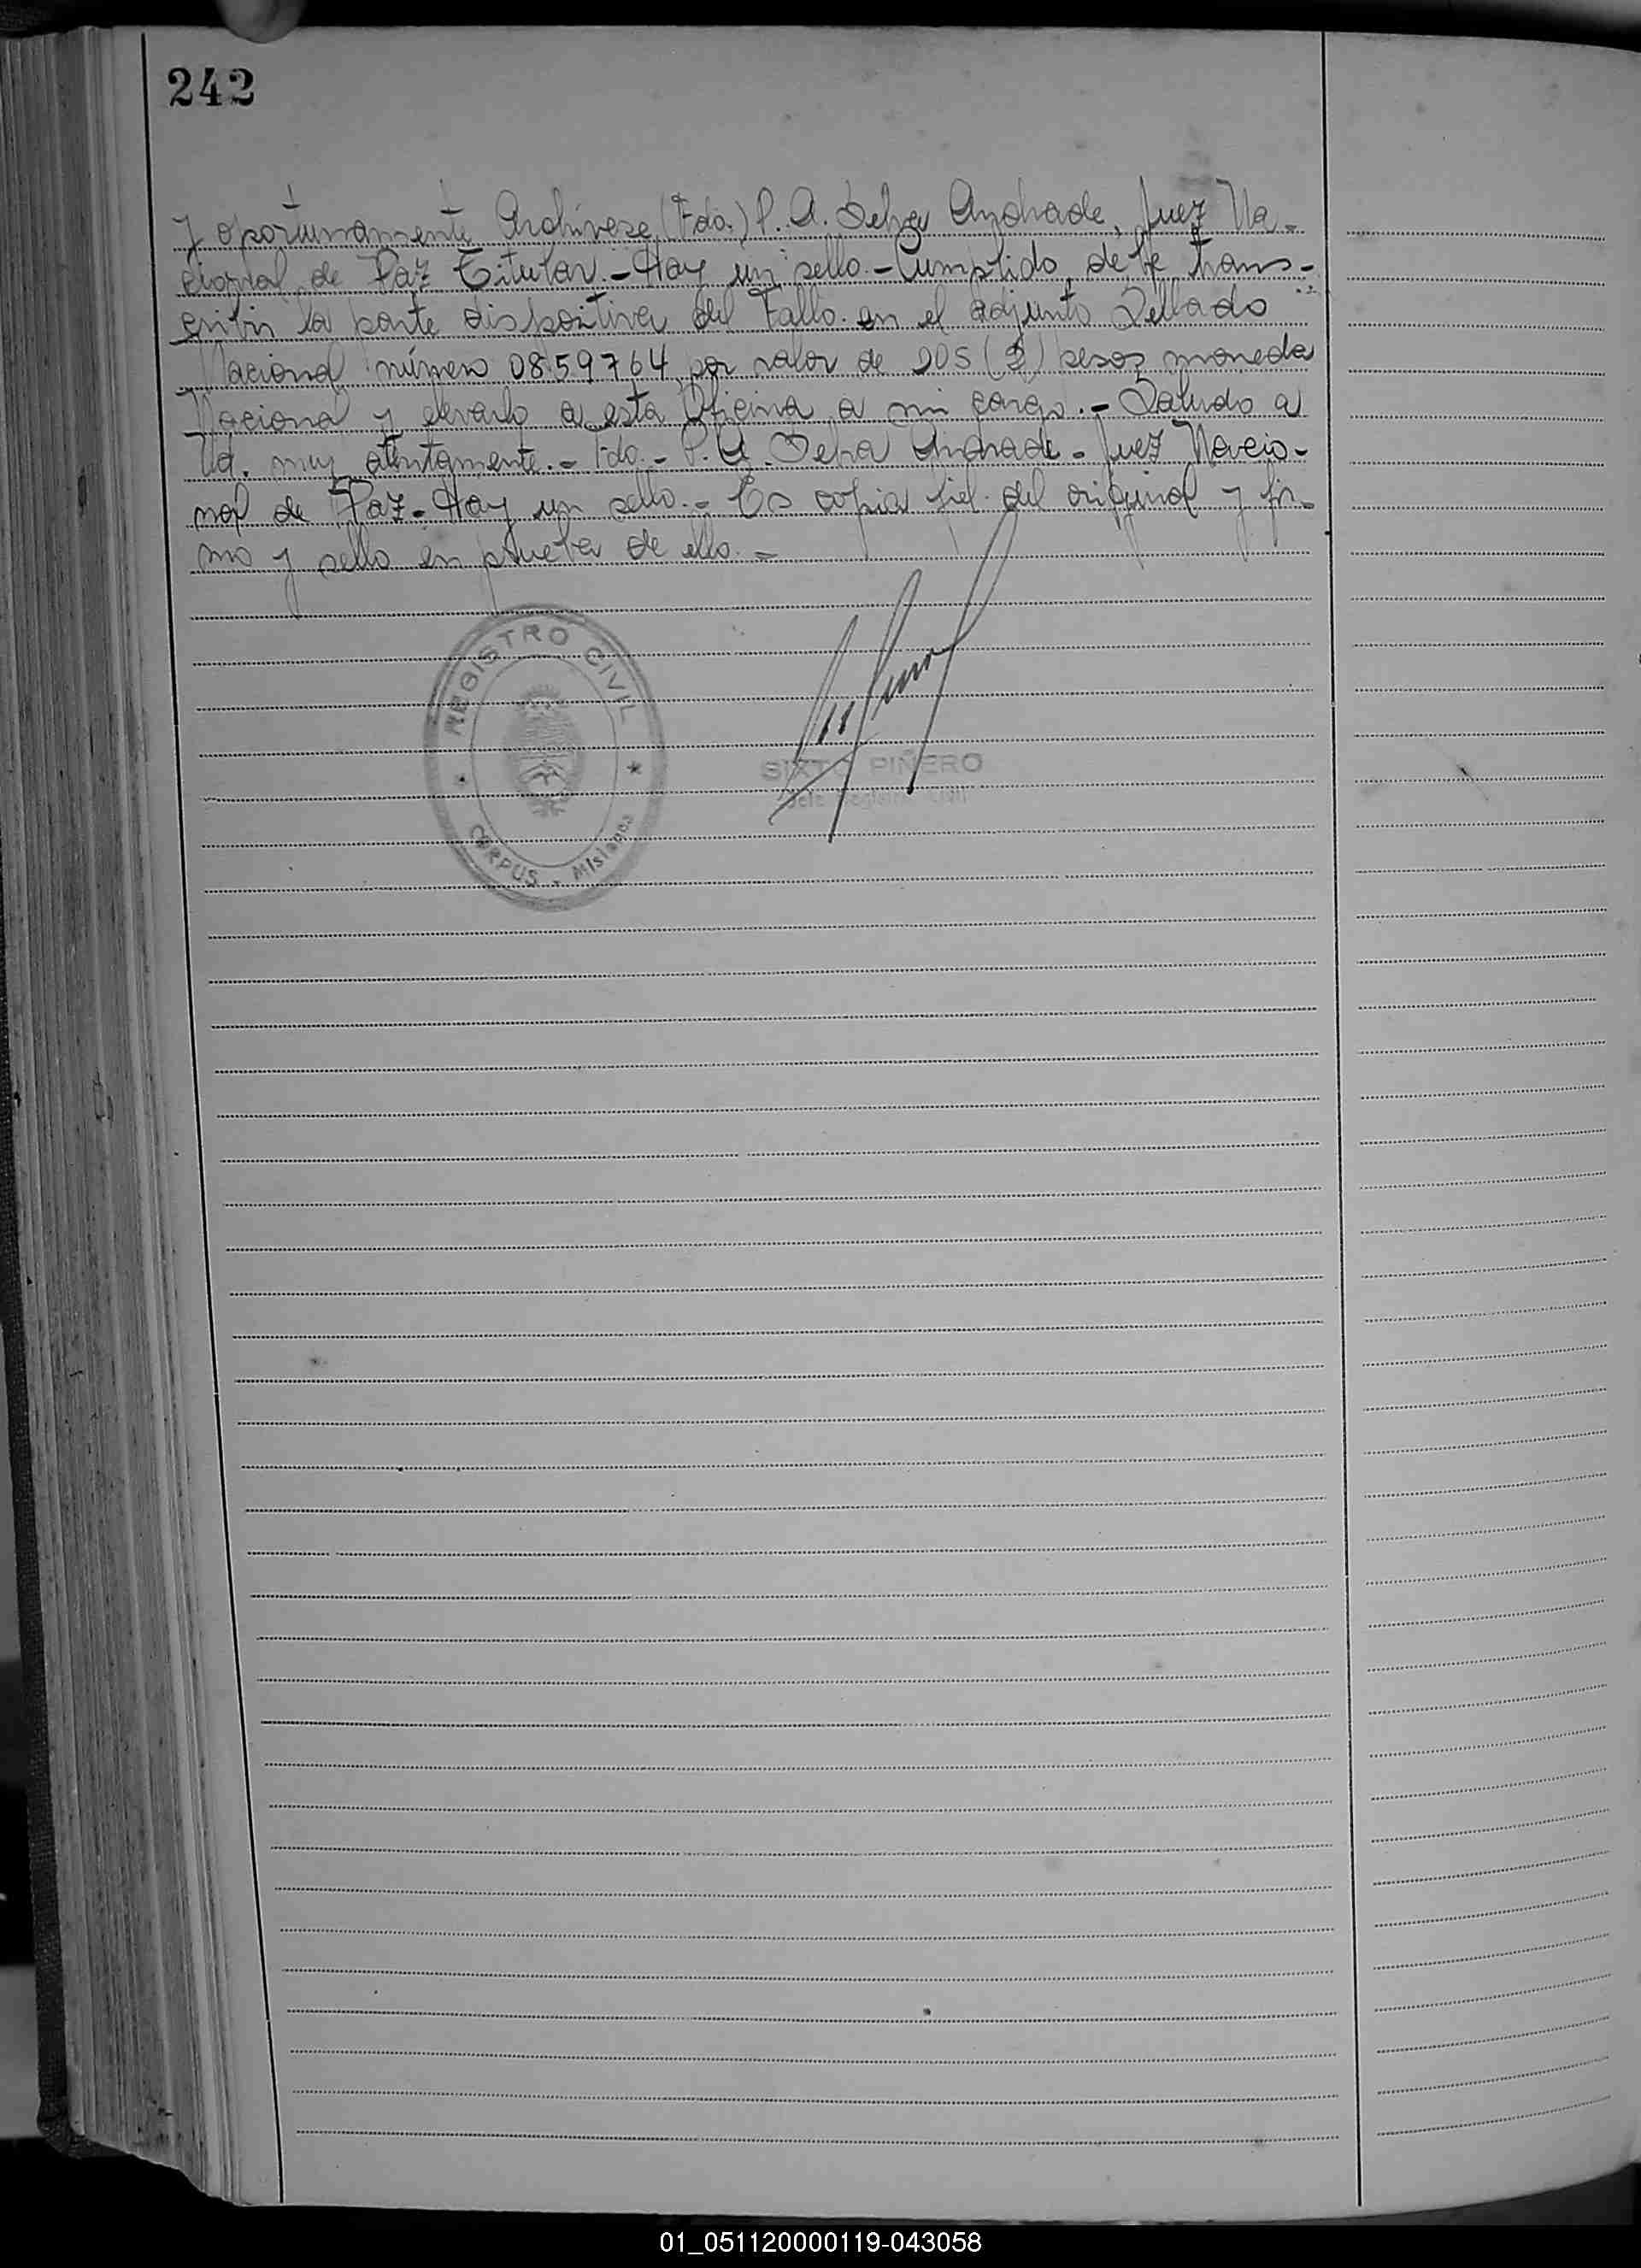 242
y oportunamente Archívese (Fdo.) P. A. Andrade, Juez Na-
cional de Paz Titular.- Hay un sello.- Cumplido, debe trans-
cribir la parte dispositiva del Fallo en el adjunto Sellado
Nacional número 0859764 por valor de DOS (2) pesos moneda
Nacional y elevarlo a esta Oficina a mi cargo.- Saludo a
Ud. muy atentamente.- Fdo.- P. A. Andrade - Juez Nacio-
nal de Paz - Hay un sello.- Es copia fiel del original y fir-
mo y sello en prueba de ello.-
REGISTRO CIVIL
CORPUS - Misiones
SIXTO PIÑERO
Jefe Registro Civil
01_051120000119-043058